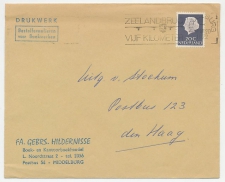 DRUKWERK
Bestelformulieren
voor Boekwerken
ZEELANDBRUG
VIJF KILOMETER
NEDERLAND
Uitg. v. Stockum
Postbus 123
den Haag
FA. GEBRS. HILDERNISSE
Boek- en Kantoorboekhandel
L. Noordstraat
Postbus 34 - MIDDELBURG